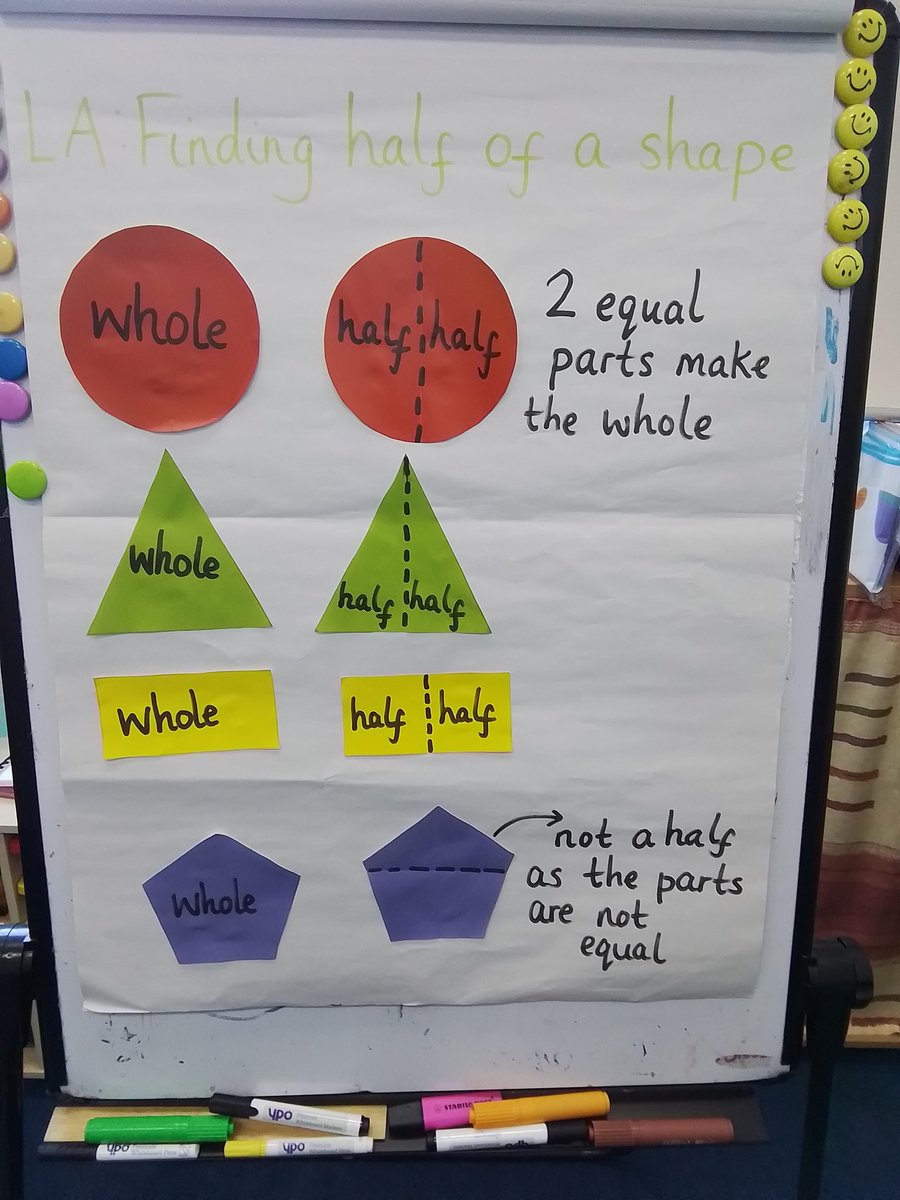 LA: Finding half of a shape
whole
half half
2 equal
parts make
the whole
whole
half half
whole
half half
whole
not a half
as the parts
are not
equal
ypo
STABILO
ypo
ypo